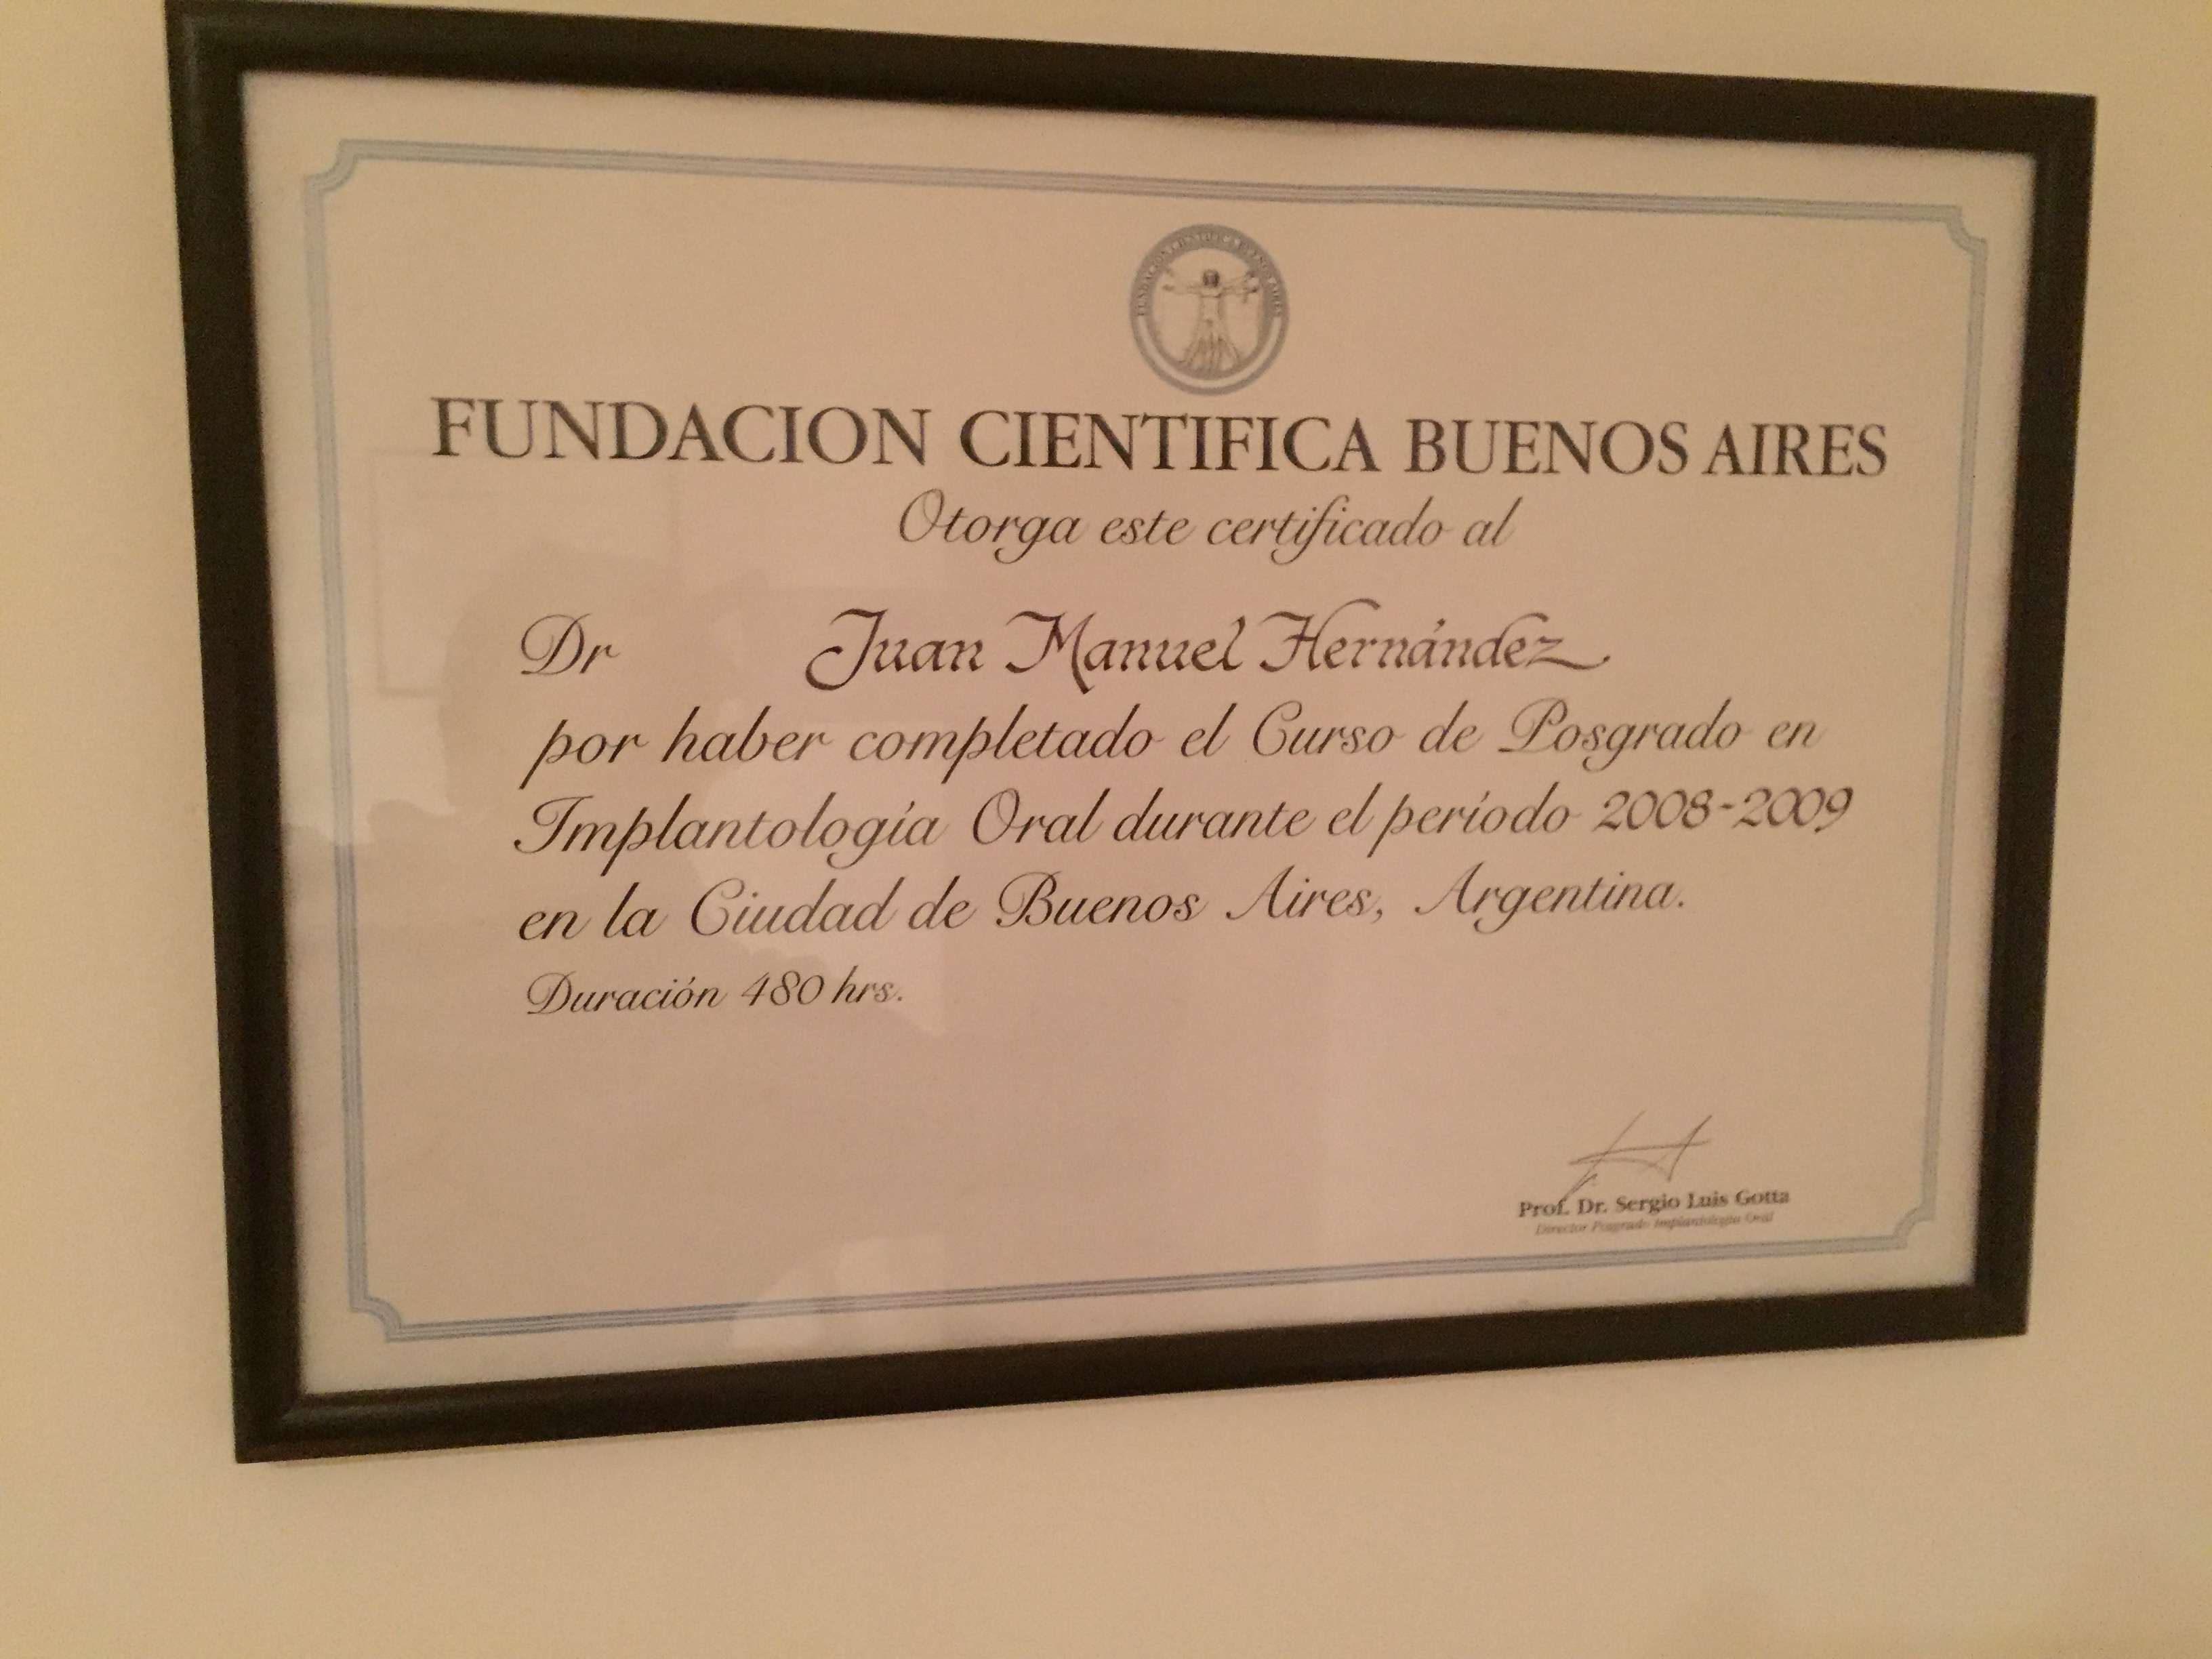 FUNDACION CIENTIFICA BUENOS AIRES
FUNDACION CIENTIFICA BUENOS AIRES
Otorga este certificado al
Dr Juan Manuel Hernández
por haber completado el Curso de Posgrado en
Implantología Oral durante el período 2008-2009
en la Ciudad de Buenos Aires, Argentina.
Duración 480 hrs.
Prof. Dr. Sergio Luis Gotta
Director Posgrado Implantología Oral